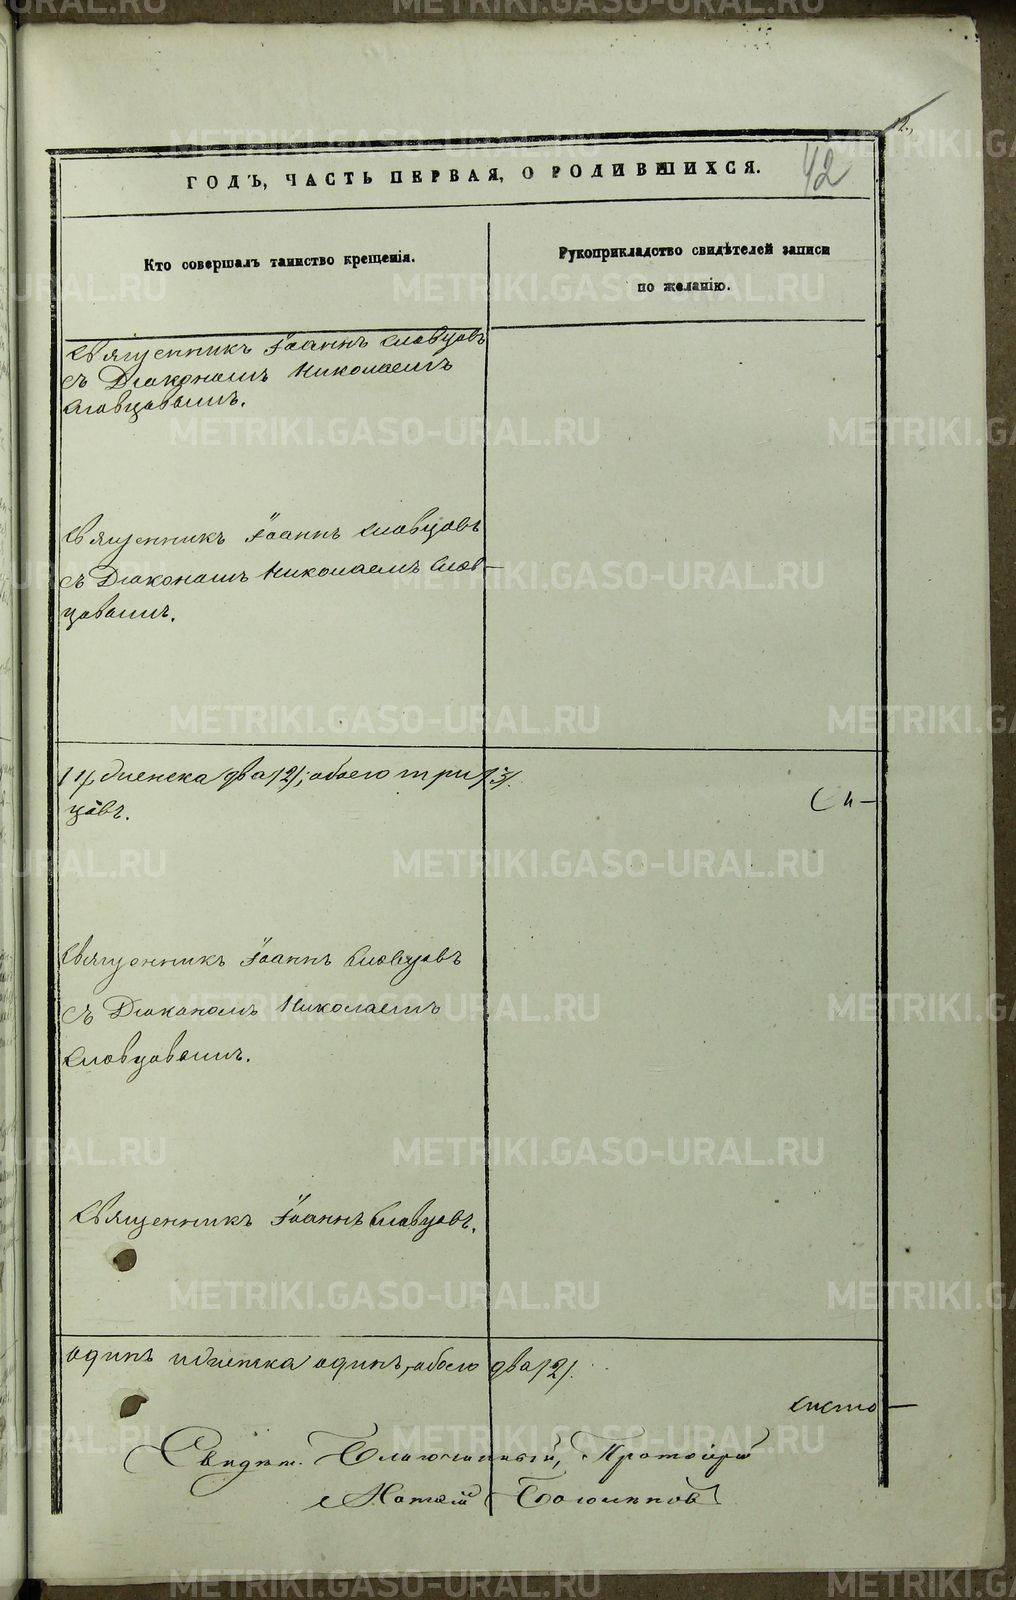 12.
42
ГОДЪ, ЧАСТЬ ПЕРВАЯ, О РОДИВШИХСЯ.
Кто совершалъ таинство крещенія.
Рукоприкладство свидѣтелей записи
по желанію.
Священникъ Іоаннъ Словцовъ
съ Діакономъ Николаемъ
Словцовымъ.
Священникъ Іоаннъ Словцовъ
съ Діакономъ Николаемъ Слов-
цовымъ.
/1/, женска два /2/, обоего три /3/.
цовъ.
Си-
Священникъ Іоаннъ Словцовъ
съ Діакономъ Николаемъ
Словцовымъ.
Священникъ Іоаннъ Словцовъ.
одинъ и женска одинъ, обоего два /2/.
Свидѣт. Благочинный, Протоіерей
METRIKI.GASO-URAL.RU